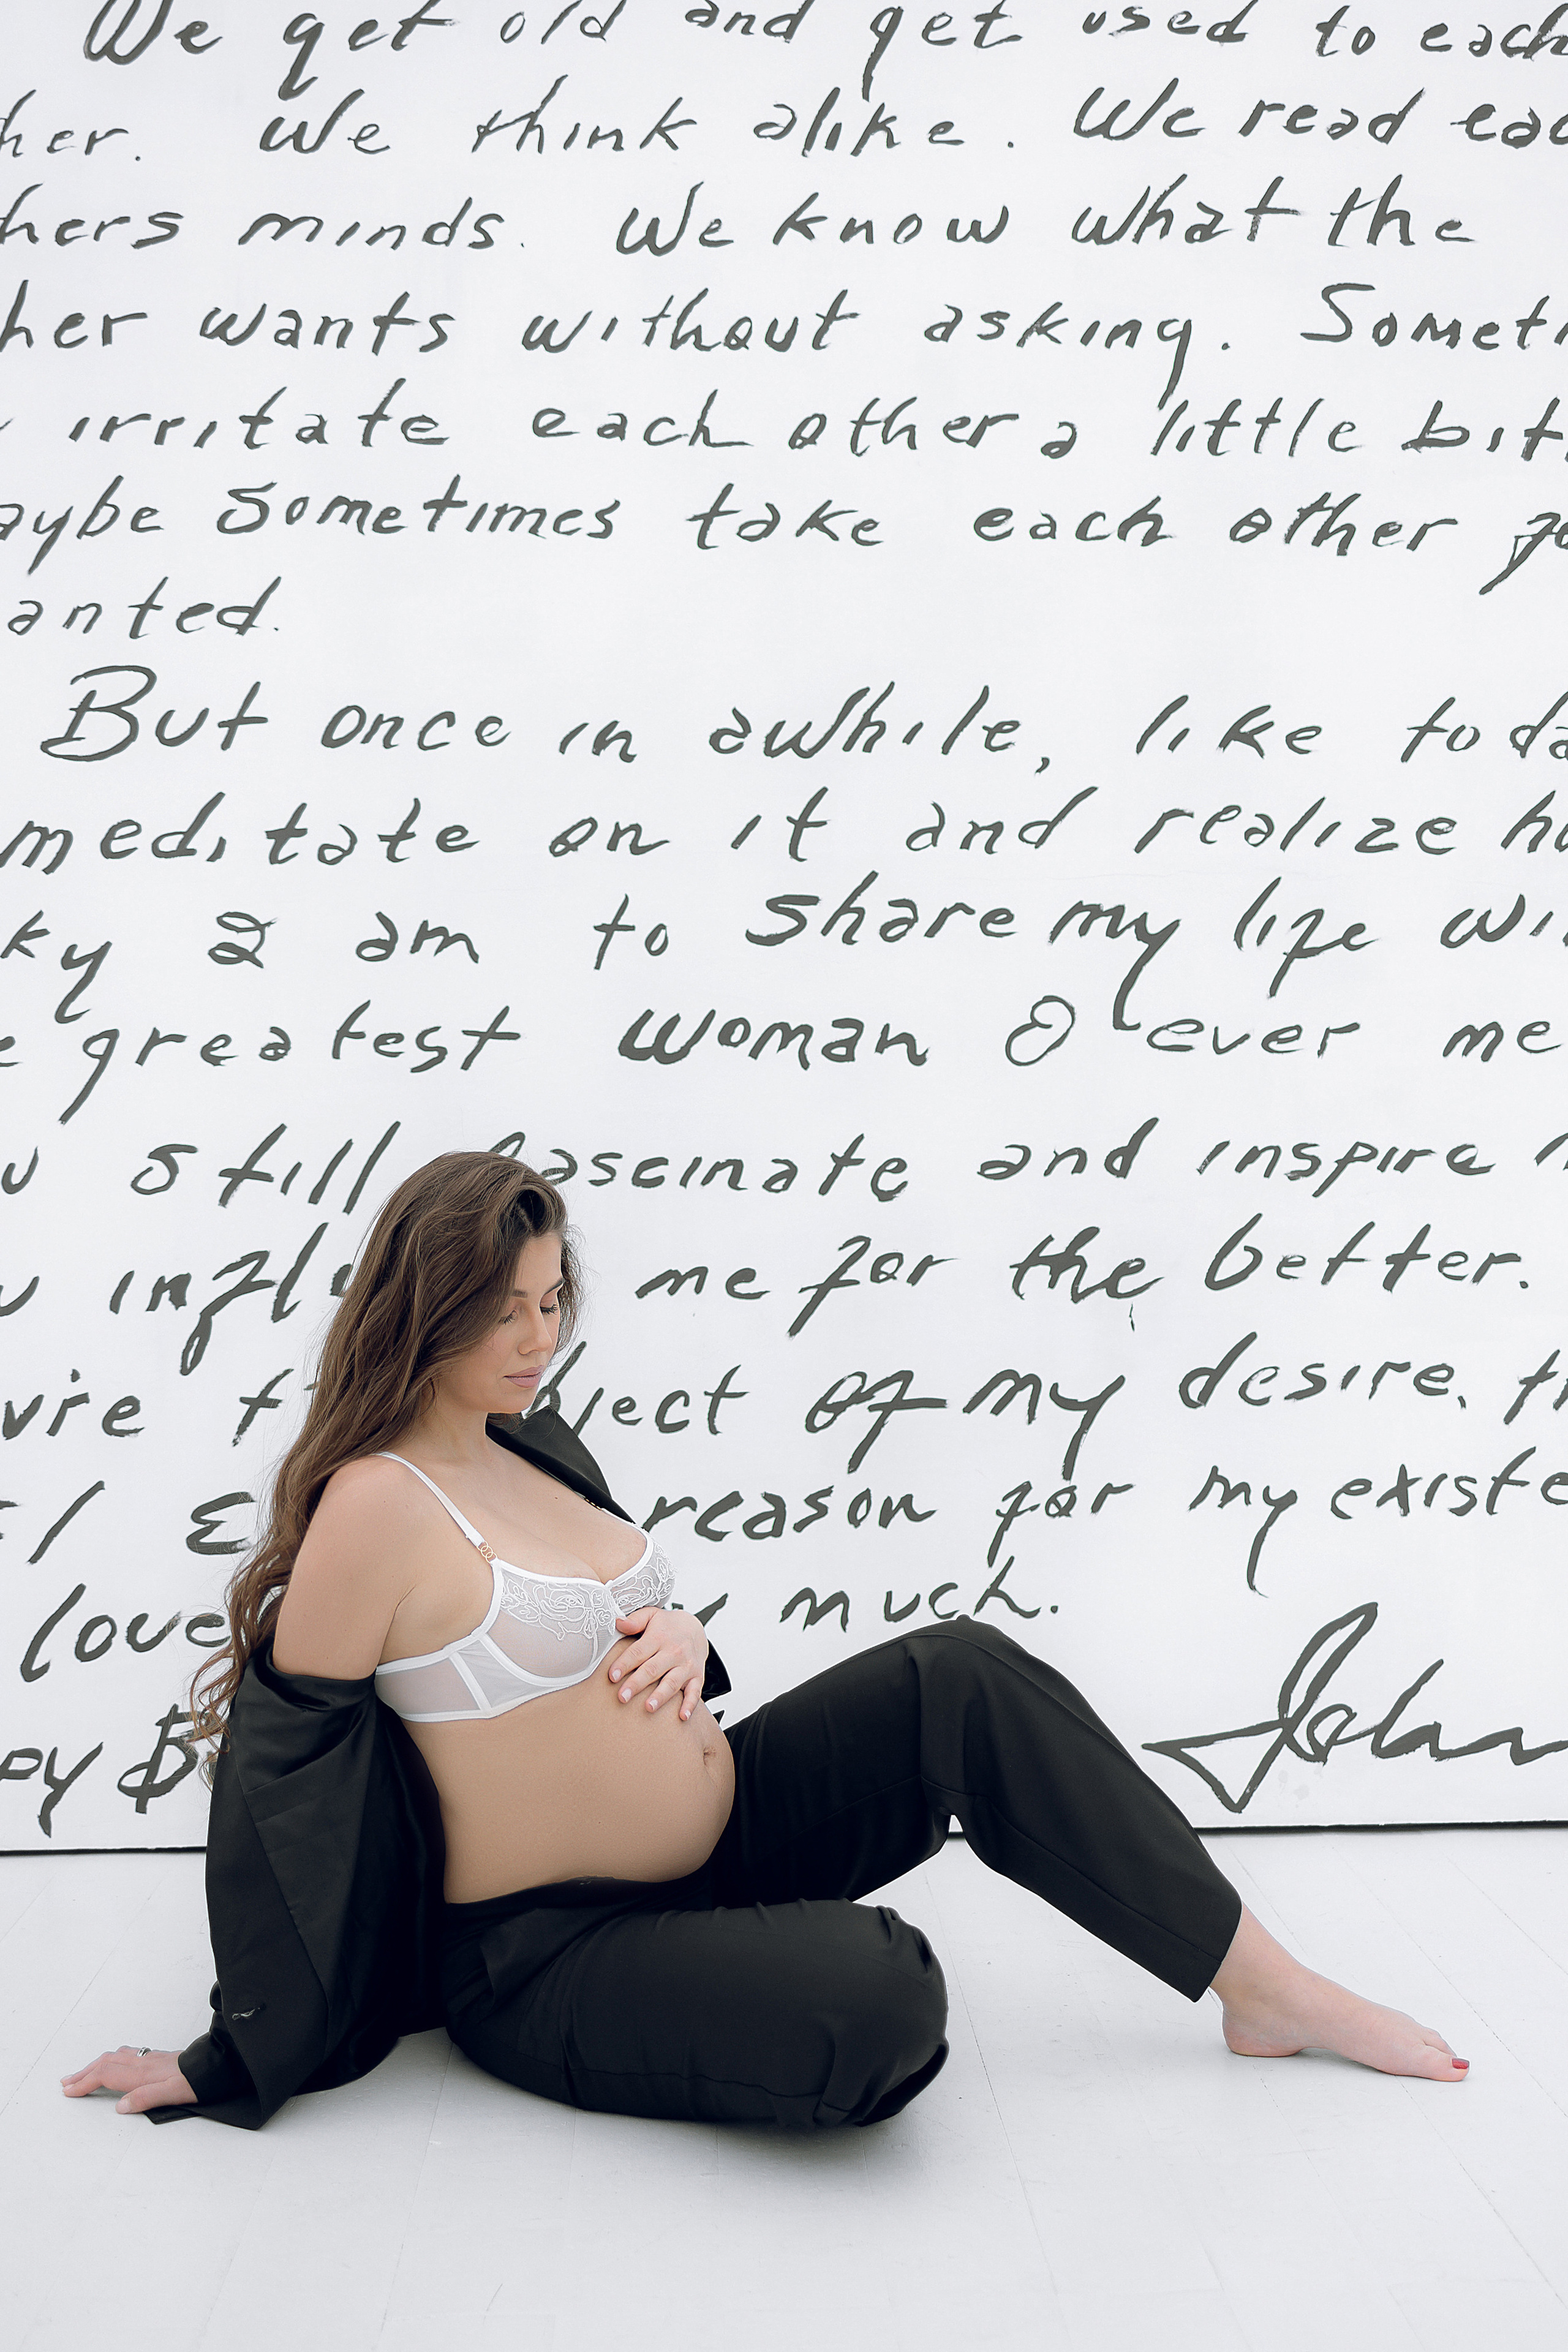 We get old and get used to each
her. We think alike. We read eac
hers minds. We know what the
her wants without asking. Someti
irritate each other a little bit.
aybe sometimes take each other fo
anted.
But once in awhile, like toda
meditate on it and realize ho
ky I am to share my life wi
e greatest woman I ever me
u still fascinate and inspire
u influ me for the better.
u're t bject of my desire, th
reason for my existe
love y much.
ppy B John